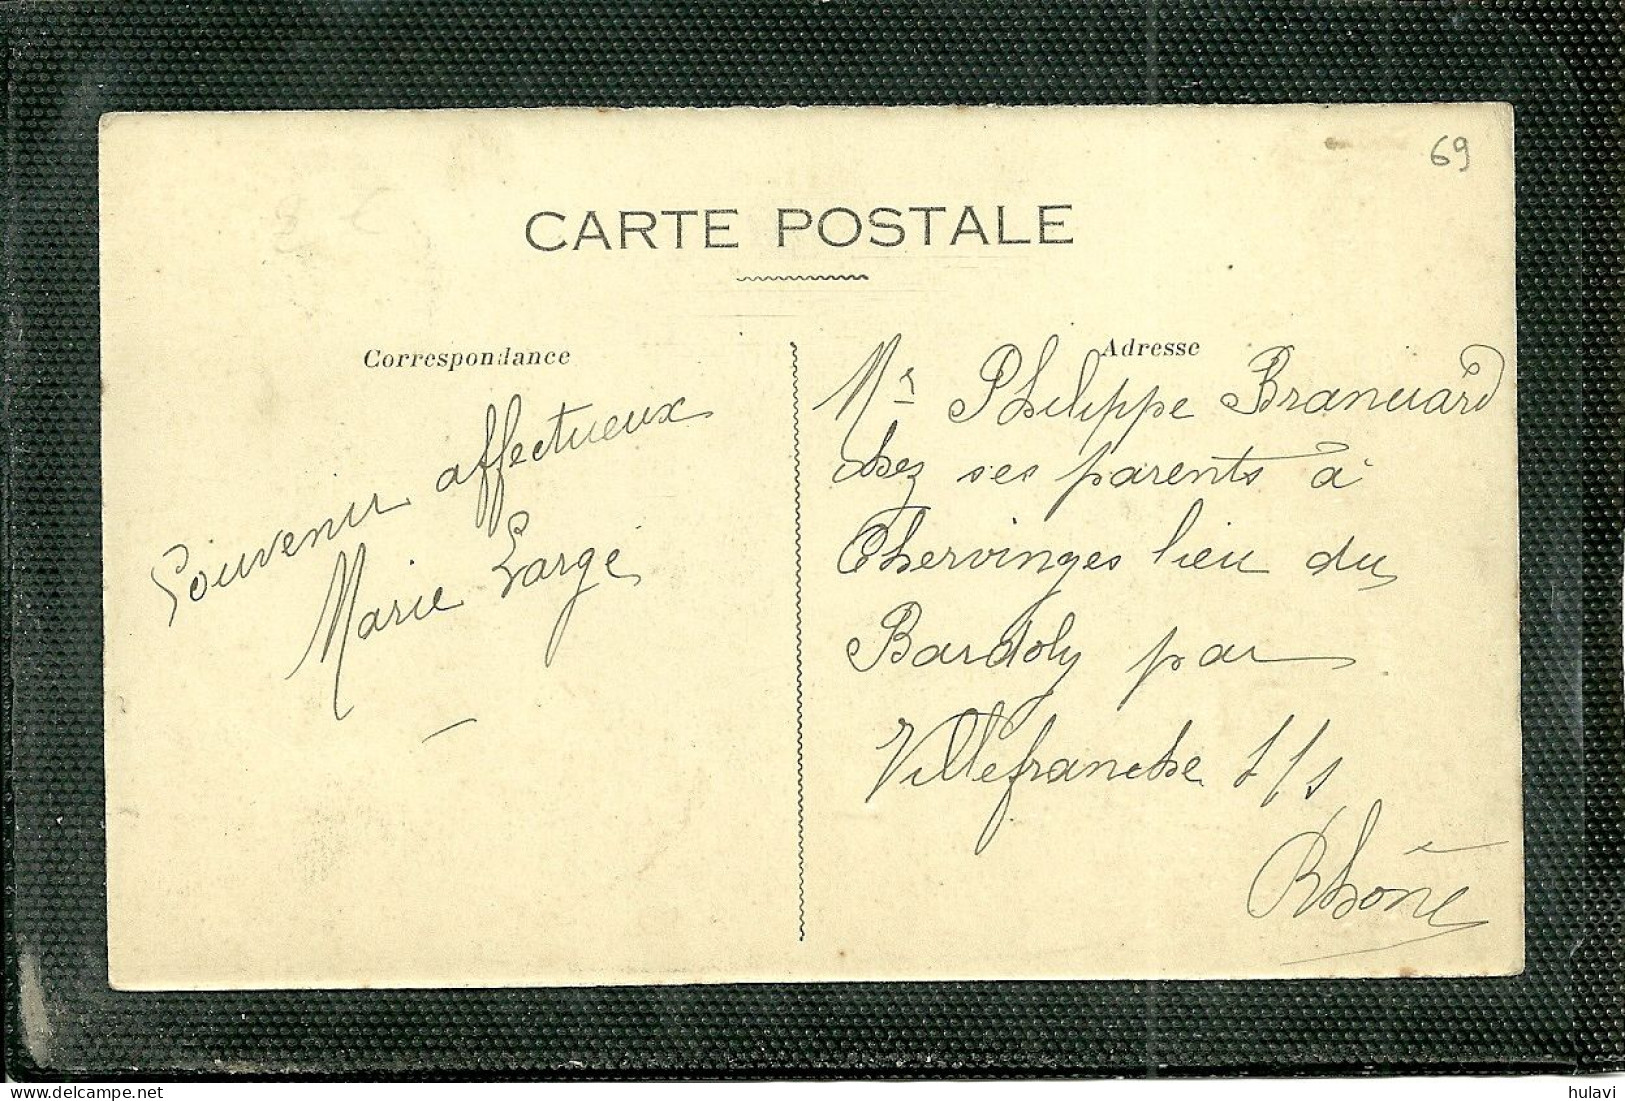 69
CARTE POSTALE
Correspondance
Souvenir affectueux
Marie Large
Adresse
Mr Philippe
chez ses parents à
Chervinges lieu du
Bardoly par
Villefranche s/s
Rhône
hulavi